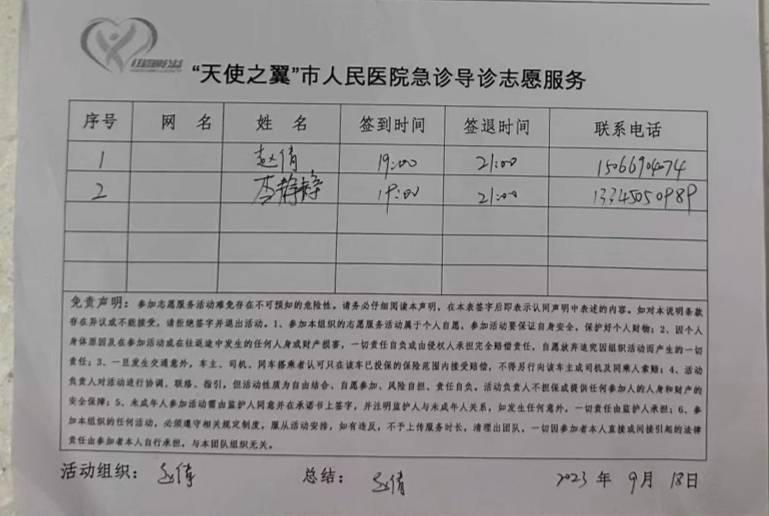 “天使之翼”市人民医院急诊导诊志愿服务
序号 网 名 姓 名 签到时间 签退时间 联系电话
1 赵倩 19:00 21:00
2 李静静 19:00 21:00 13345050989
免责声明：参加志愿服务活动难免存在不可预知的危险性。请务必仔细阅读本声明，在本表签字后即表示认同声明中表述的内容。如对本说明条款
存在异议或不能接受，请拒绝签字并退出活动。1、参加本组织的志愿服务活动属于个人自愿，参加活动要保证自身安全，保护好个人财物；2、因个人
身体原因及在参加活动或在往返途中发生的任何人身或财产损害，一切责任自负或由侵权人承担完全赔偿责任，自愿放弃追究因组织活动而产生的一切
责任；3、一旦发生交通意外，车主、司机、同车搭乘者认可只在该车已投保的保险范围内接受赔偿，不得另行向该车主或司机及同乘人索赔；4、活动
负责人对活动进行协调、联络、指引，但活动性质为自由结合、自愿参加、风险自担、责任自负。活动负责人不担保或提供任何参加人的人身和财产的
安全保障；5、未成年人参加活动需由监护人同意并在承诺书上签字，并注明监护人与未成年人关系，如发生任何意外，一切责任由监护人承担；6、参
加本组织的任何活动，必须遵守相关规定制度，服从活动安排，如有违反，不予上传服务时长，清理出团队，一切因参加者本人直接或间接引起的法律
责任由参加者本人自行承担，与本团队组织无关。
活动组织： 赵倩 总结： 赵倩 2023 年 9 月 18日